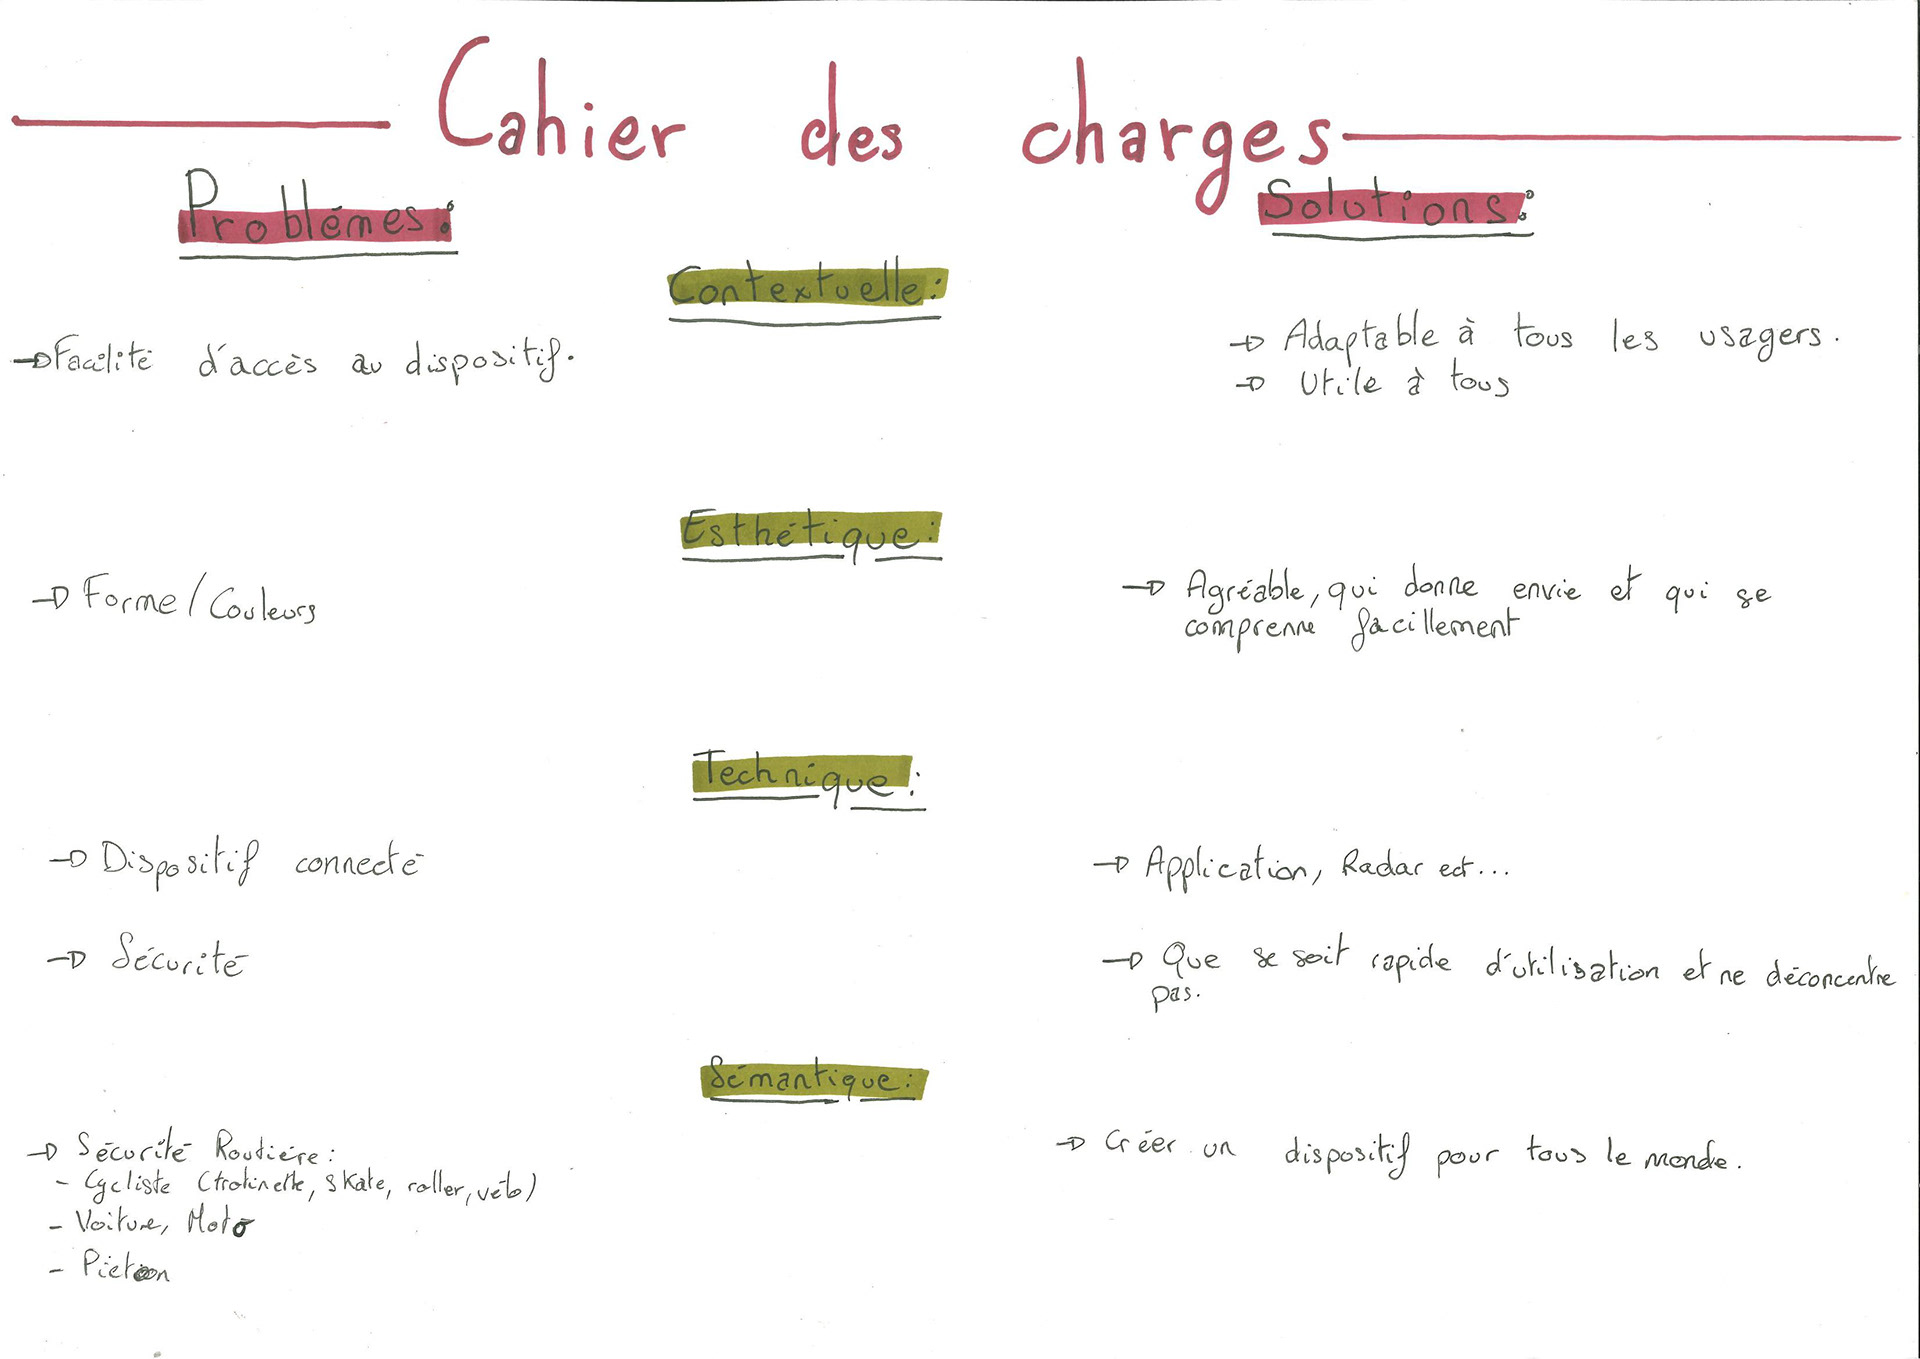 Cahier des charges
Problémes:
Solutions:
Contextuelle:
Facilité d'accès au dispositif.
Adaptable à tous les usagers.
Utile à tous
Esthétique:
Forme/Couleurs
Agréable, qui donne envie et qui se
comprenne facillement
Technique:
Dispositif connecté
Application, Radar ect...
Sécurité
Que se soit rapide d'utilisation et ne déconcentre
pas.
Sémantique:
Sécurité Routiére:
- Cycliste (trotinette, skate, roller, vélo)
- Voiture, Moto
- Pieton
Créer un dispositif pour tous le monde.